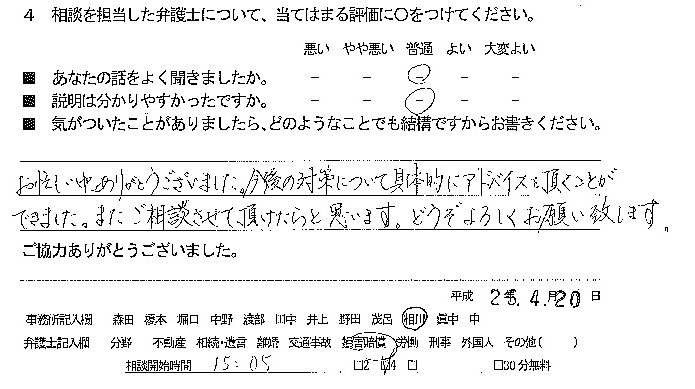 4 相談を担当した弁護士について、当てはまる評価に○をつけてください。
悪い やや悪い 普通 よい 大変よい
■ あなたの話をよく聞きましたか。 − − − − −
■ 説明は分かりやすかったですか。 − − − − −
■ 気がついたことがありましたら、どのようなことでも結構ですからお書きください。
お忙しい中、ありがとうございました。今後の対策について具体的にアドバイスを頂くことが
できました。またご相談させて頂けたらと思います。どうぞよろしくお願い致します。
ご協力ありがとうございました。
平成 28.4月20日
事務所記入欄 森田 榎本 堀口 中野 渡部 田中 井上 野田 茂呂 相川 眞中 中
弁護士記入欄 分野 不動産 相続・遺言 離婚 交通事故 損害賠償 労働 刑事 外国人 その他( )
相談開始時間 15:05 □ □ □30分無料